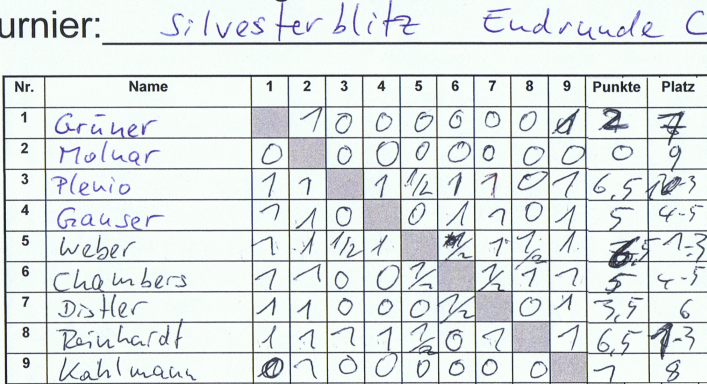 urnier: Silvesterblitz Endrunde C
Nr. Name 1 2 3 4 5 6 7 8 9 Punkte Platz
1 Grüner 1 0 0 0 0 0 0 1 2 7
2 Molnar 0 0 0 0 0 0 0 0 0 9
3 Plenio 1 1 1 1/2 1 1 0 1 6,5 1-3
4 Gauser 1 1 0 0 1 1 0 1 5 4-5
5 Weber 1 1 1/2 1 1/2 1 1/2 1 6,5 1-3
6 Chambers 1 1 0 0 1/2 1/2 1 1 5 4-5
7 Distler 1 1 0 0 0 1/2 0 1 3,5 6
8 Reinhardt 1 1 1 1 1/2 0 1 1 6,5 1-3
9 Kahlmann 0 1 0 0 0 0 0 0 1 8